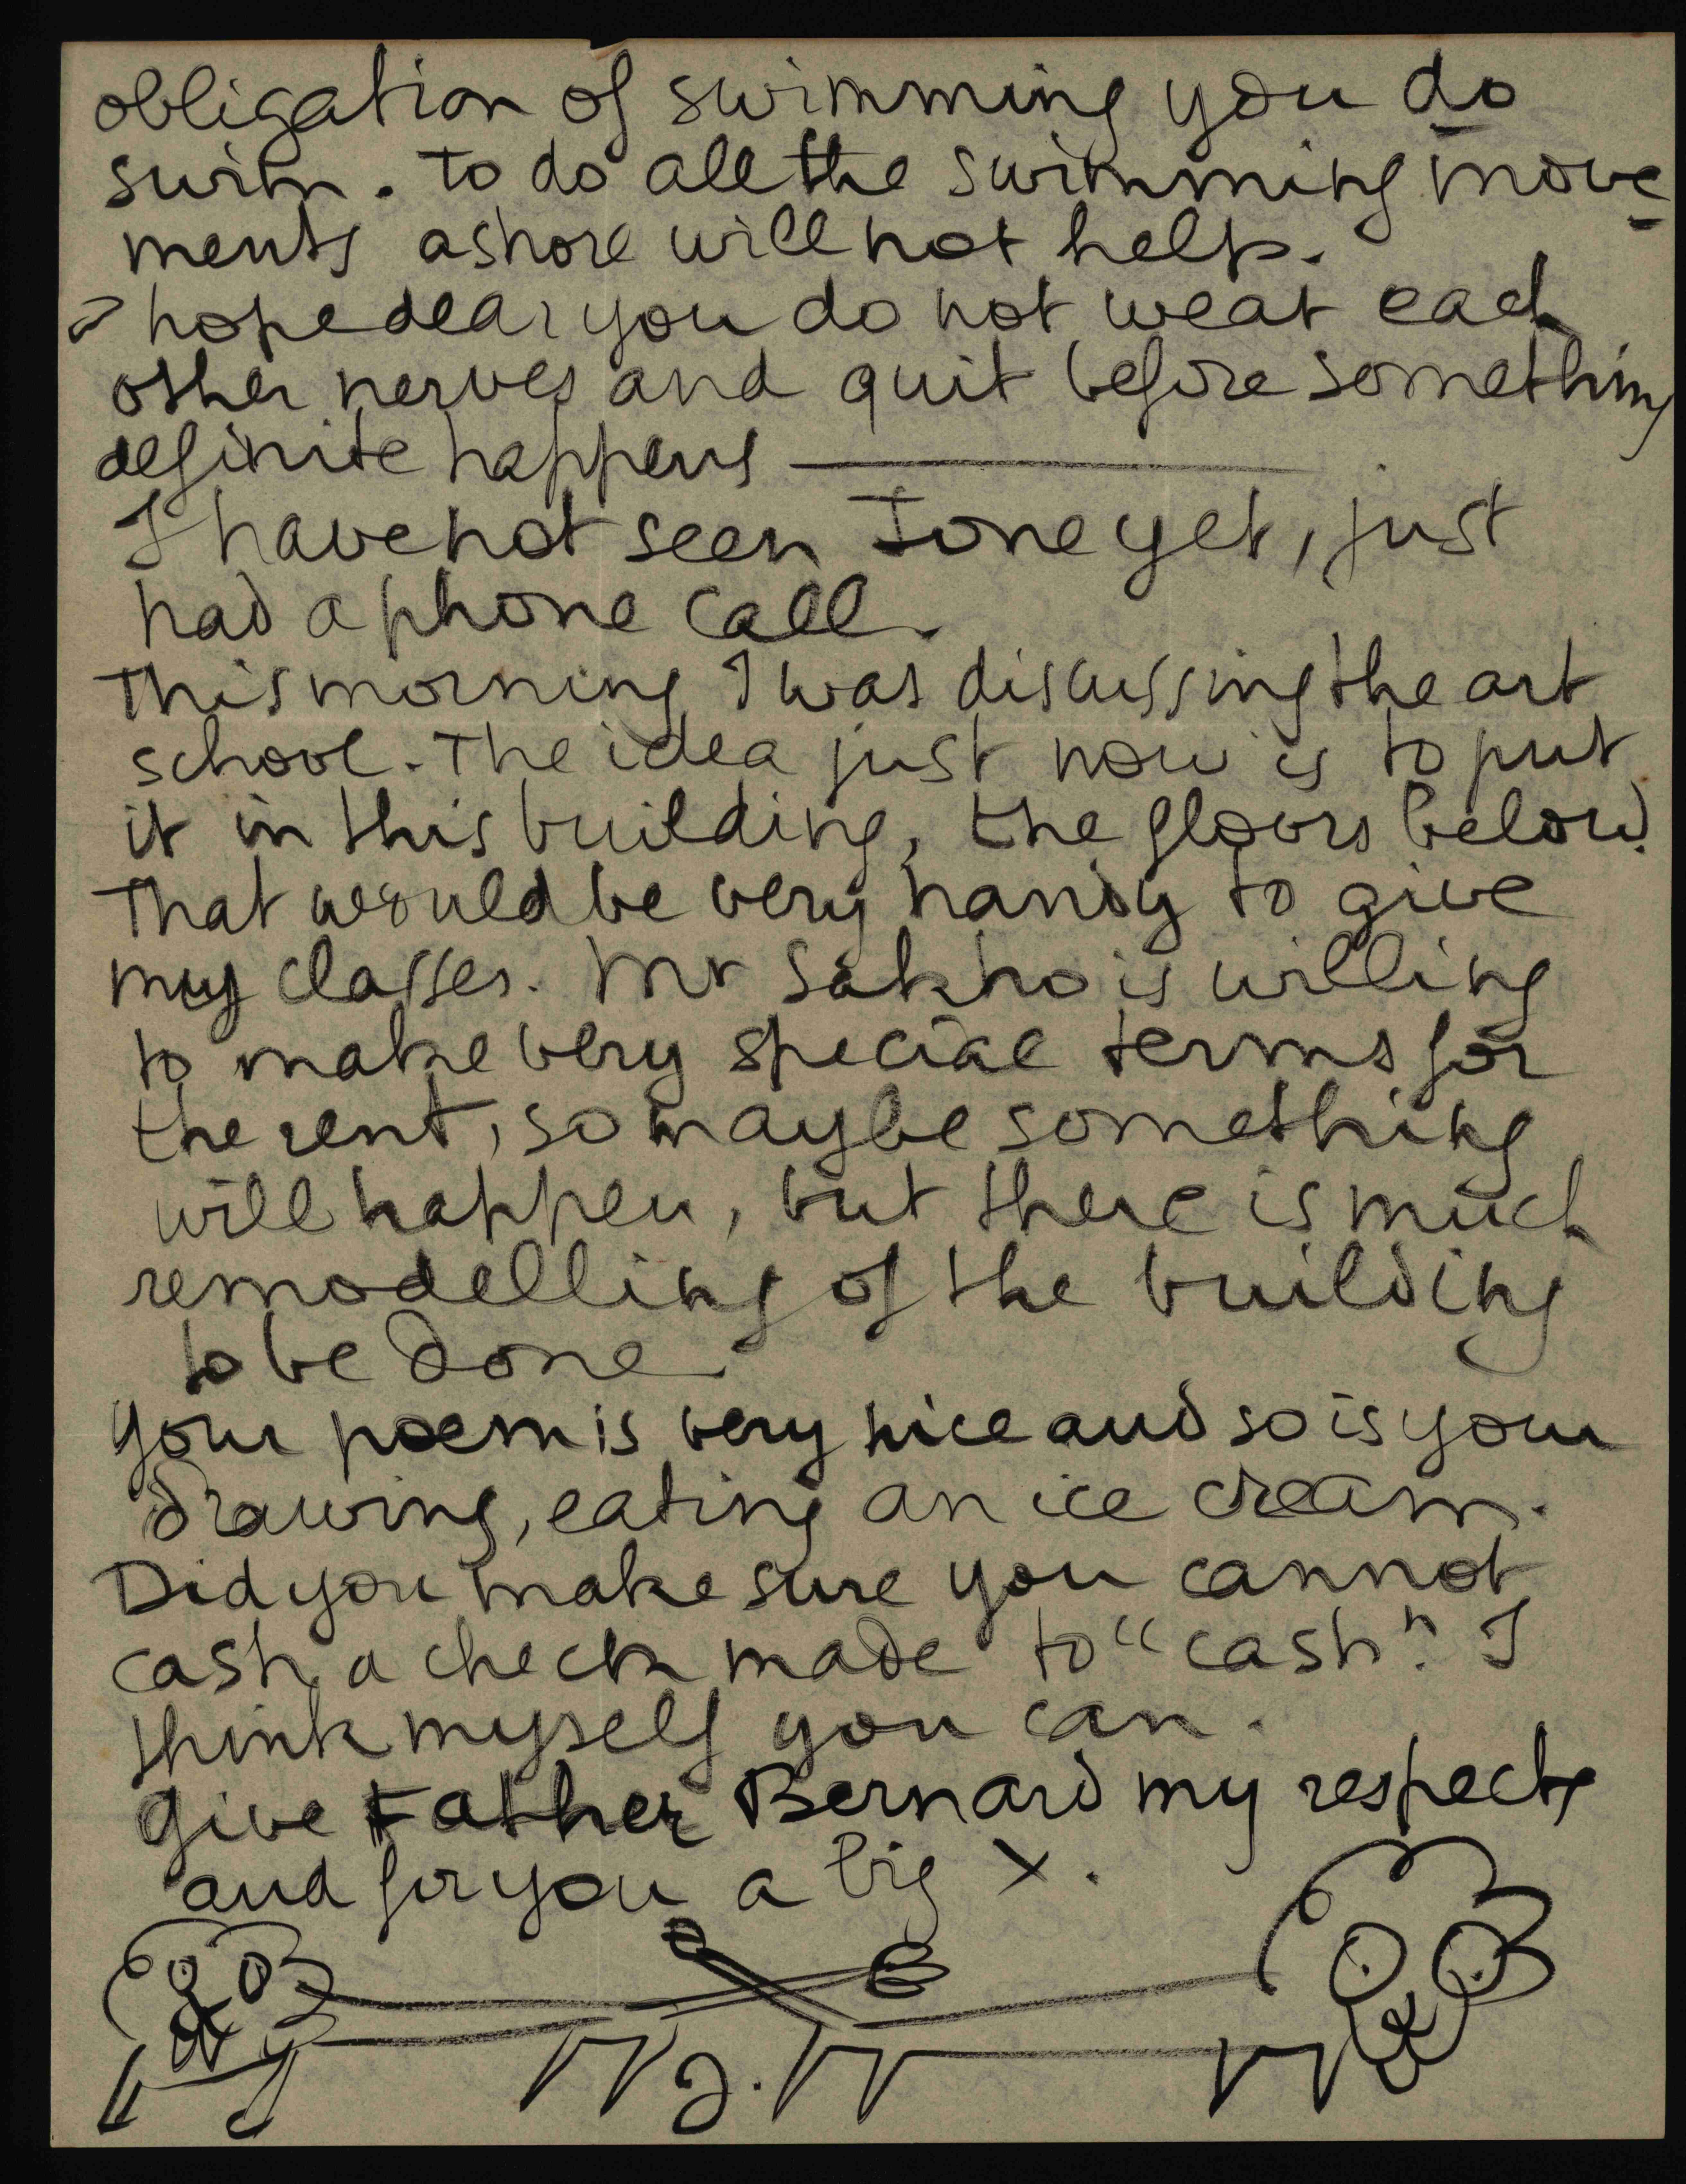 obligation of swimming you do
swim. to do all the swimming move
ments ashore will not help.
I hope dear you do not wear each
other nerves and quit before something
definite happens —
I have not seen Ione yet, just
had a phone call.
This morning I was discussing the art
school. The idea just now is to put
it in this building, the floors below.
That would be very handy to give
my classes. Mr Sakho is willing
to make very special terms for
the rent, so maybe something
will happen, but there is much
remodelling of the building
to be done
your poem is very nice and so is your
drawing, eating an ice cream.
Did you make sure you cannot
cash a check made to "cash". I
think myself you can.
Give Father Bernard my respects
and for you a big x.
J.